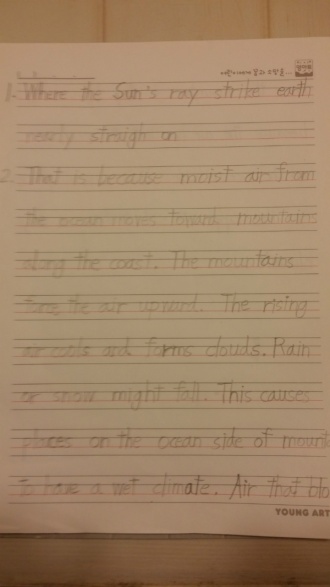 어린이에게 꿈과 희망을...
1. Where the Sun's ray strike earth
nearly streigh on
2. That is because moist air from
the ocean moves toward mountains
along the coast. The mountains
force the air upward. The rising
air cools and forms clouds. Rain
or snow might fall. This causes
places on the ocean side of mount
to have a wet climate. Air that blo
YOUNG ART